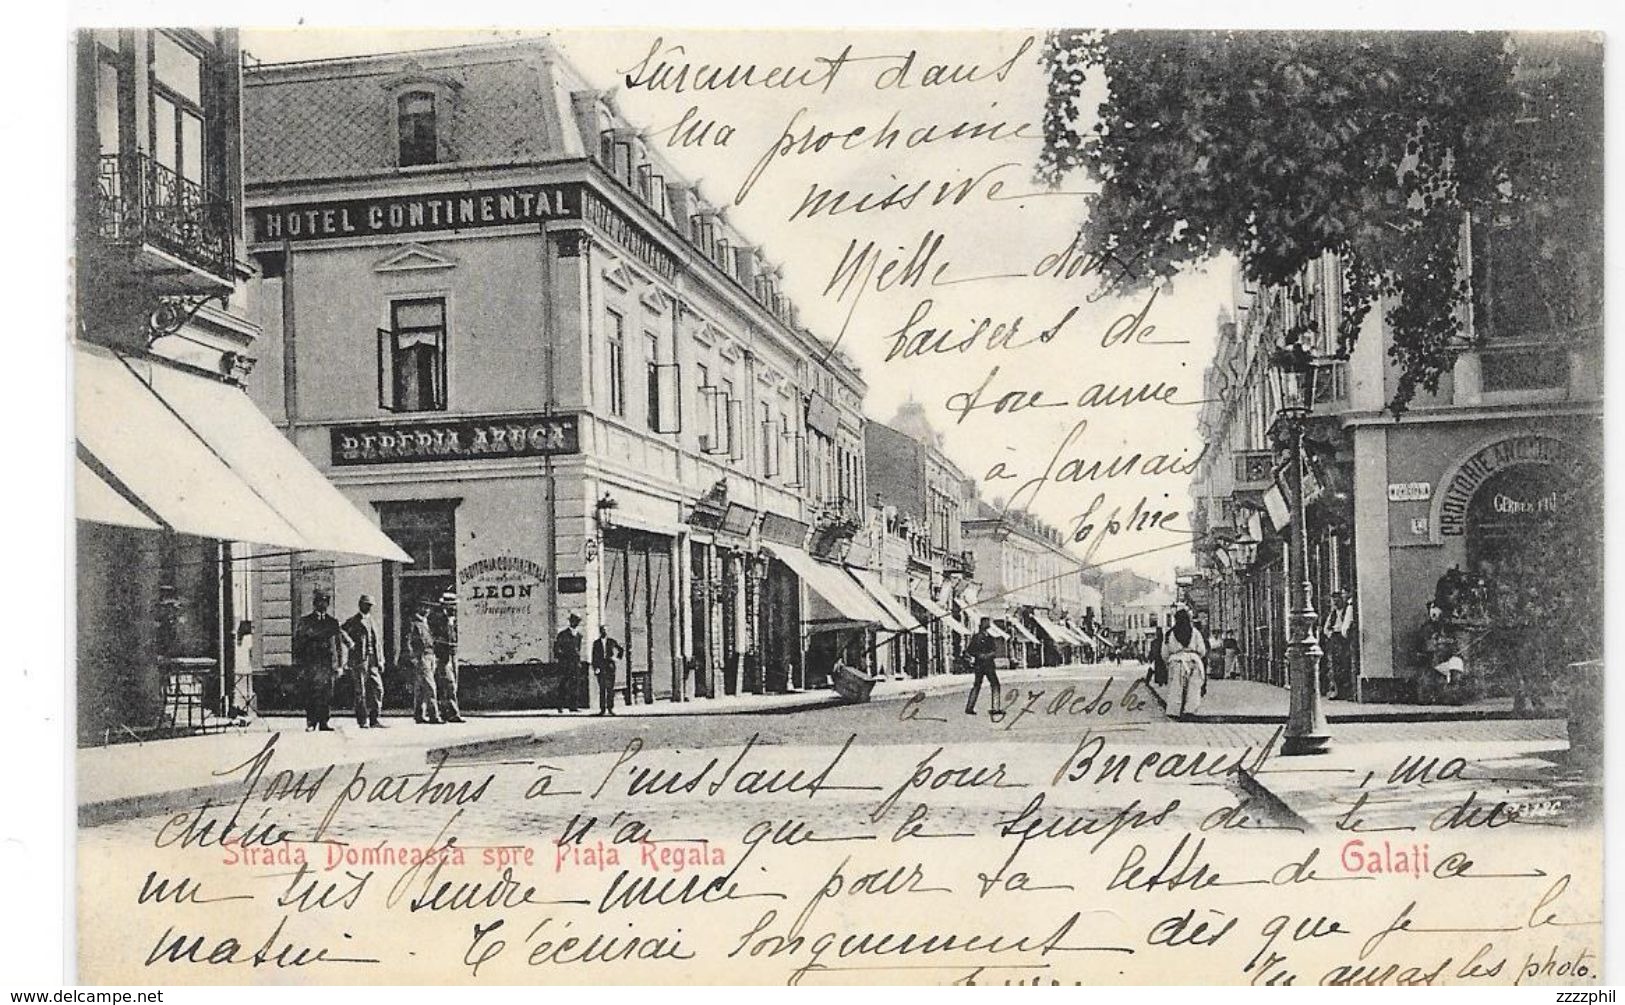 HOTEL CONTINENTAL
BERERIA AZUGA
CROITORIA CONTINENTALA
LEON
CROITORIE
ce 27 Octobre
Nous partons à l'instant pour Bucarest, ma
chérie, je n'ai que le temps de te dire
un très tendre merci pour ta lettre de ce
matin. T'écrirai longuement dès que je le
Tu auras les photo.
sûrement dans
ma prochaine
missive.
Mille doux
baisers de
ton amie
à jamais
Sophie
Strada Domneasca spre Piața Regala
Galați
zzzzphil